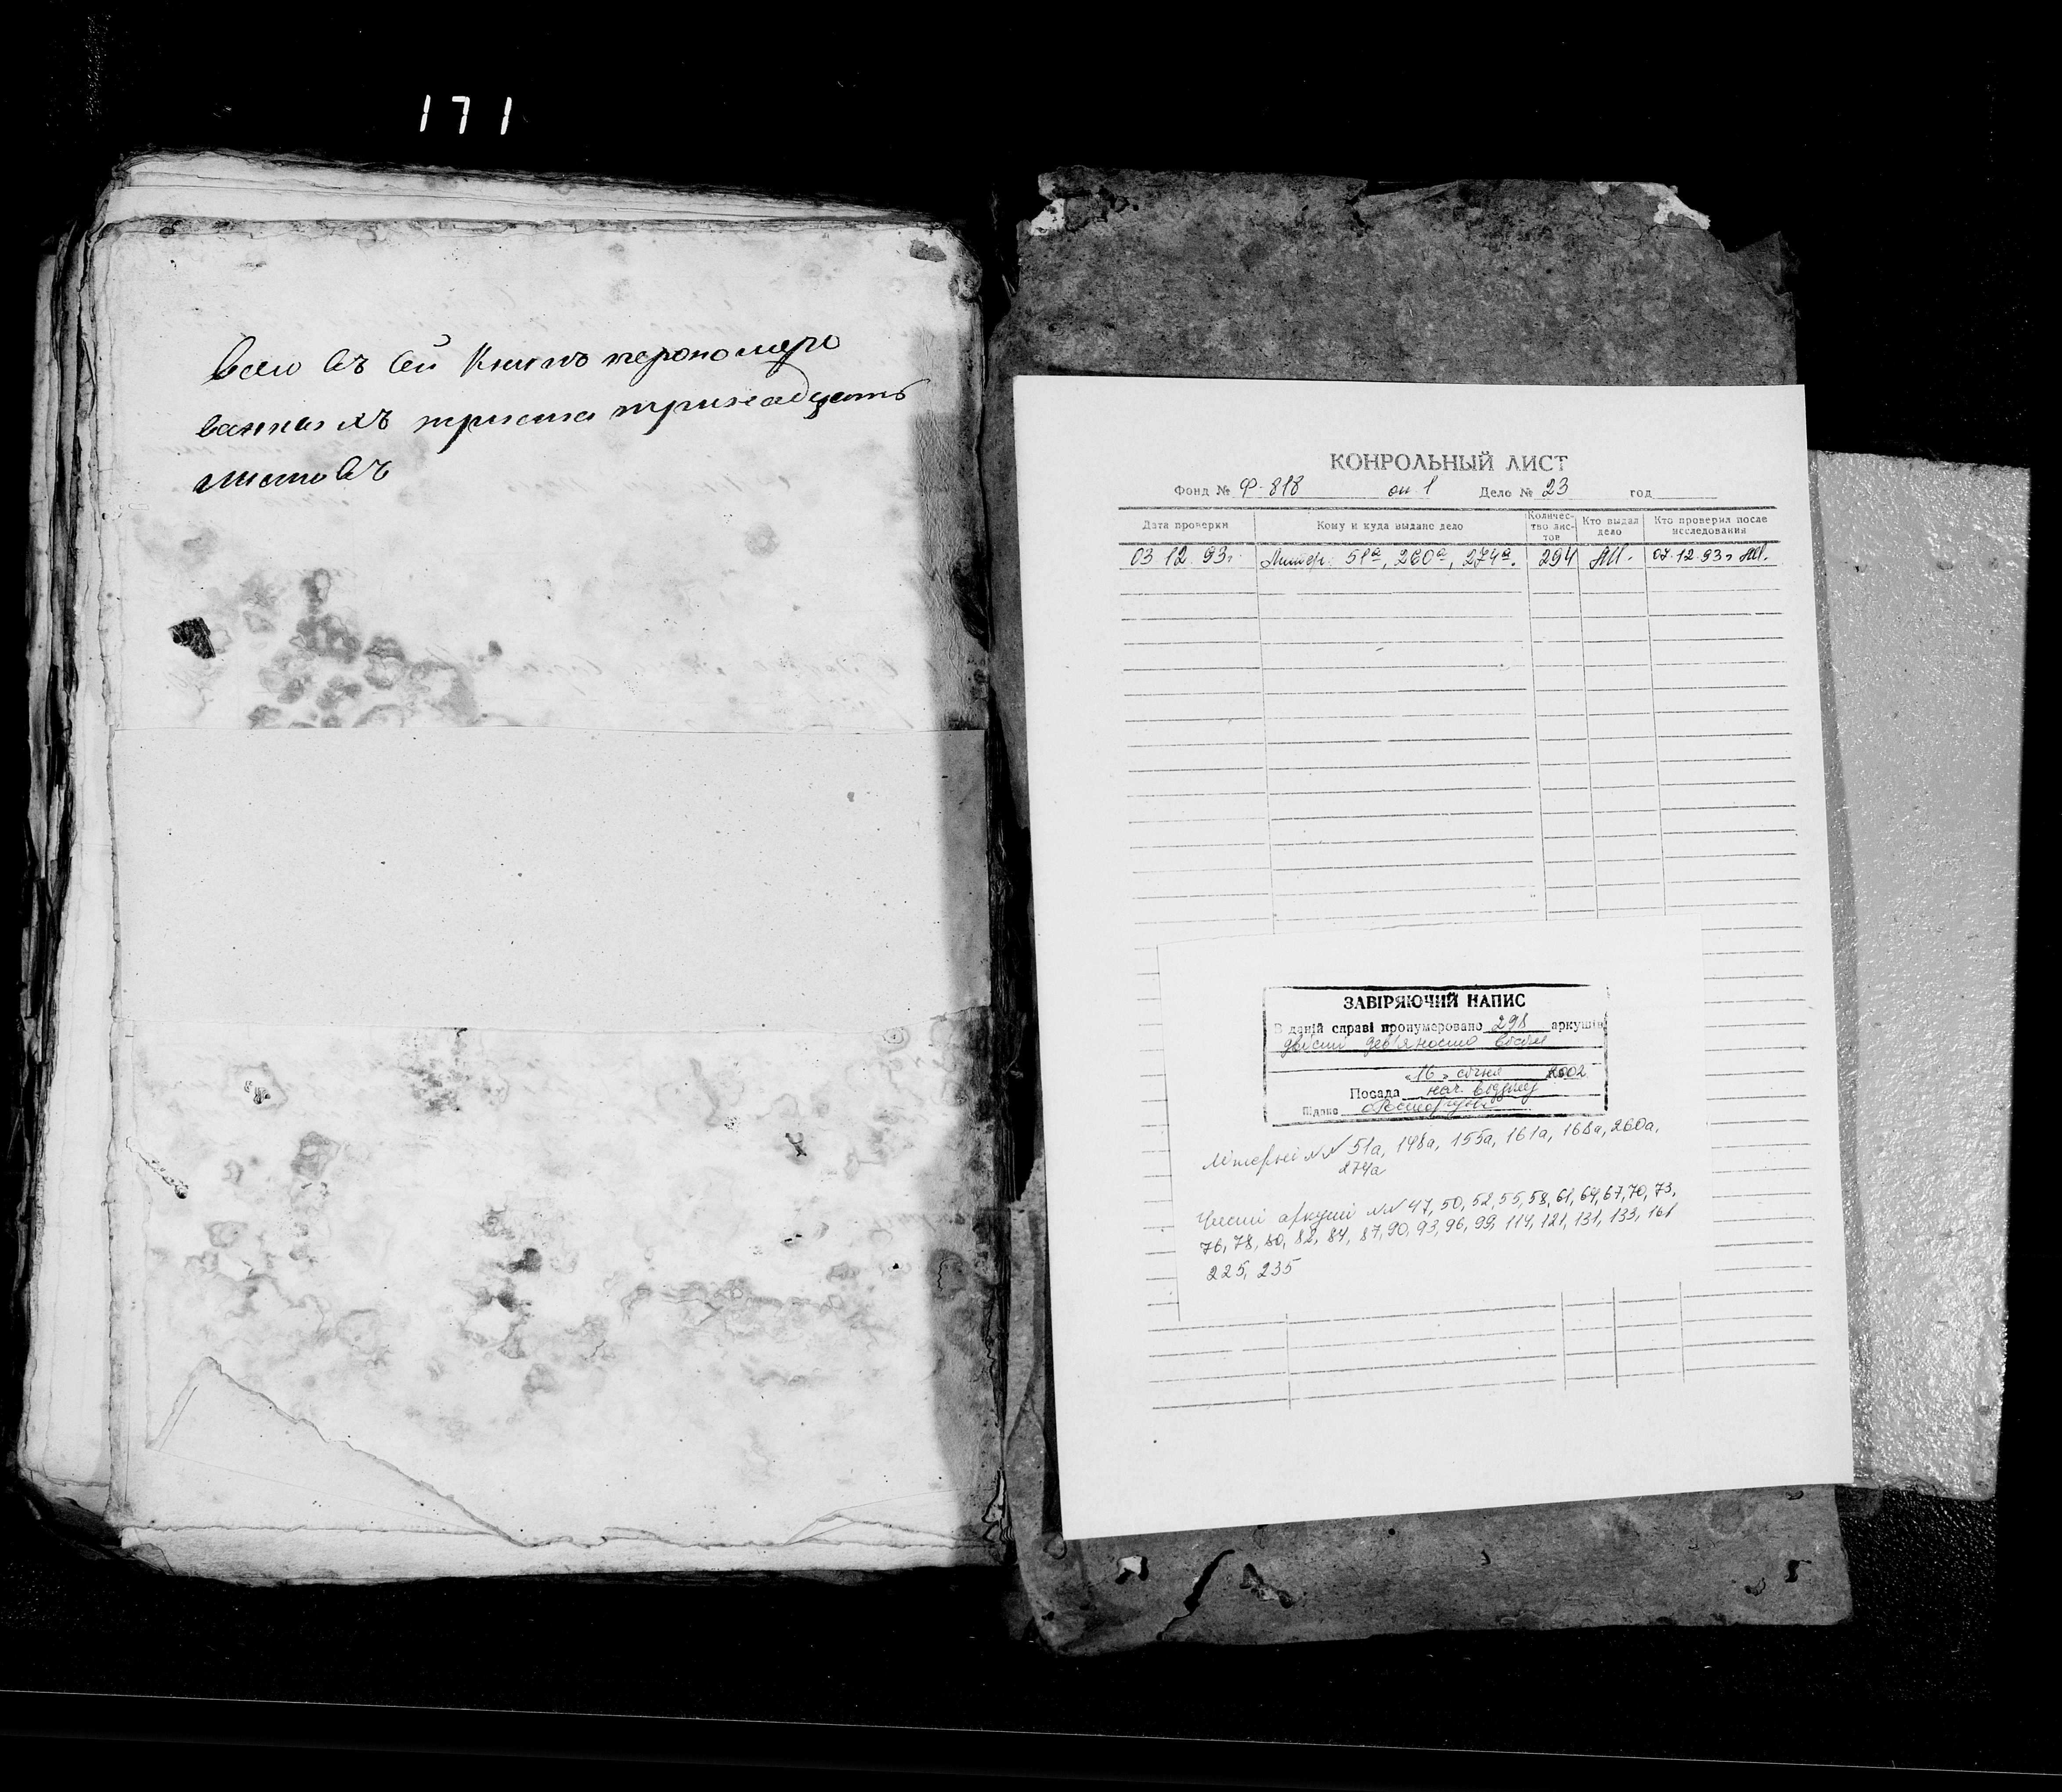 171
Всего въ сей Книгѣ перономеро
ванныхъ триста тринадцать
листовъ
КОНРОЛЬНЫЙ ЛИСТ
Фонд № Ф-818 оп 1 Дело № 23 год
Дата проверки Кому и куда выдано дело Количес-тво лис-тов Кто выдал дело Кто проверил после исследования
03 12 93г. Литер: 51а, 260а, 274а. 294 АМ. 07.12.93г АМ.
ЗАВІРЯЮЧИЙ НАПИС
В даній справі пронумеровано 298 аркушів
двісті дев'яносто вісім
"16" січня 2002
Посада нач. відділу
Підпис
Літерні №№ 51а, 148а, 155а, 161а, 168а, 260а,
274а
Чисті аркуші №№ 47, 50, 52, 55, 58, 61, 64, 67, 70, 73,
76, 78, 80, 82, 84, 87, 90, 93, 96, 99, 114, 121, 131, 133, 161
225, 235